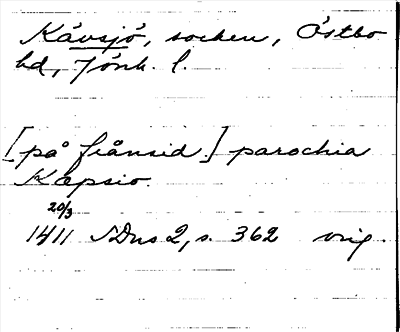 Kävsjö, socken, Östbo
hd, Jönk. l.
[på frånsid.] parochia
Kæpsio.
20/3
1411 SDns 2, s. 362 orig.